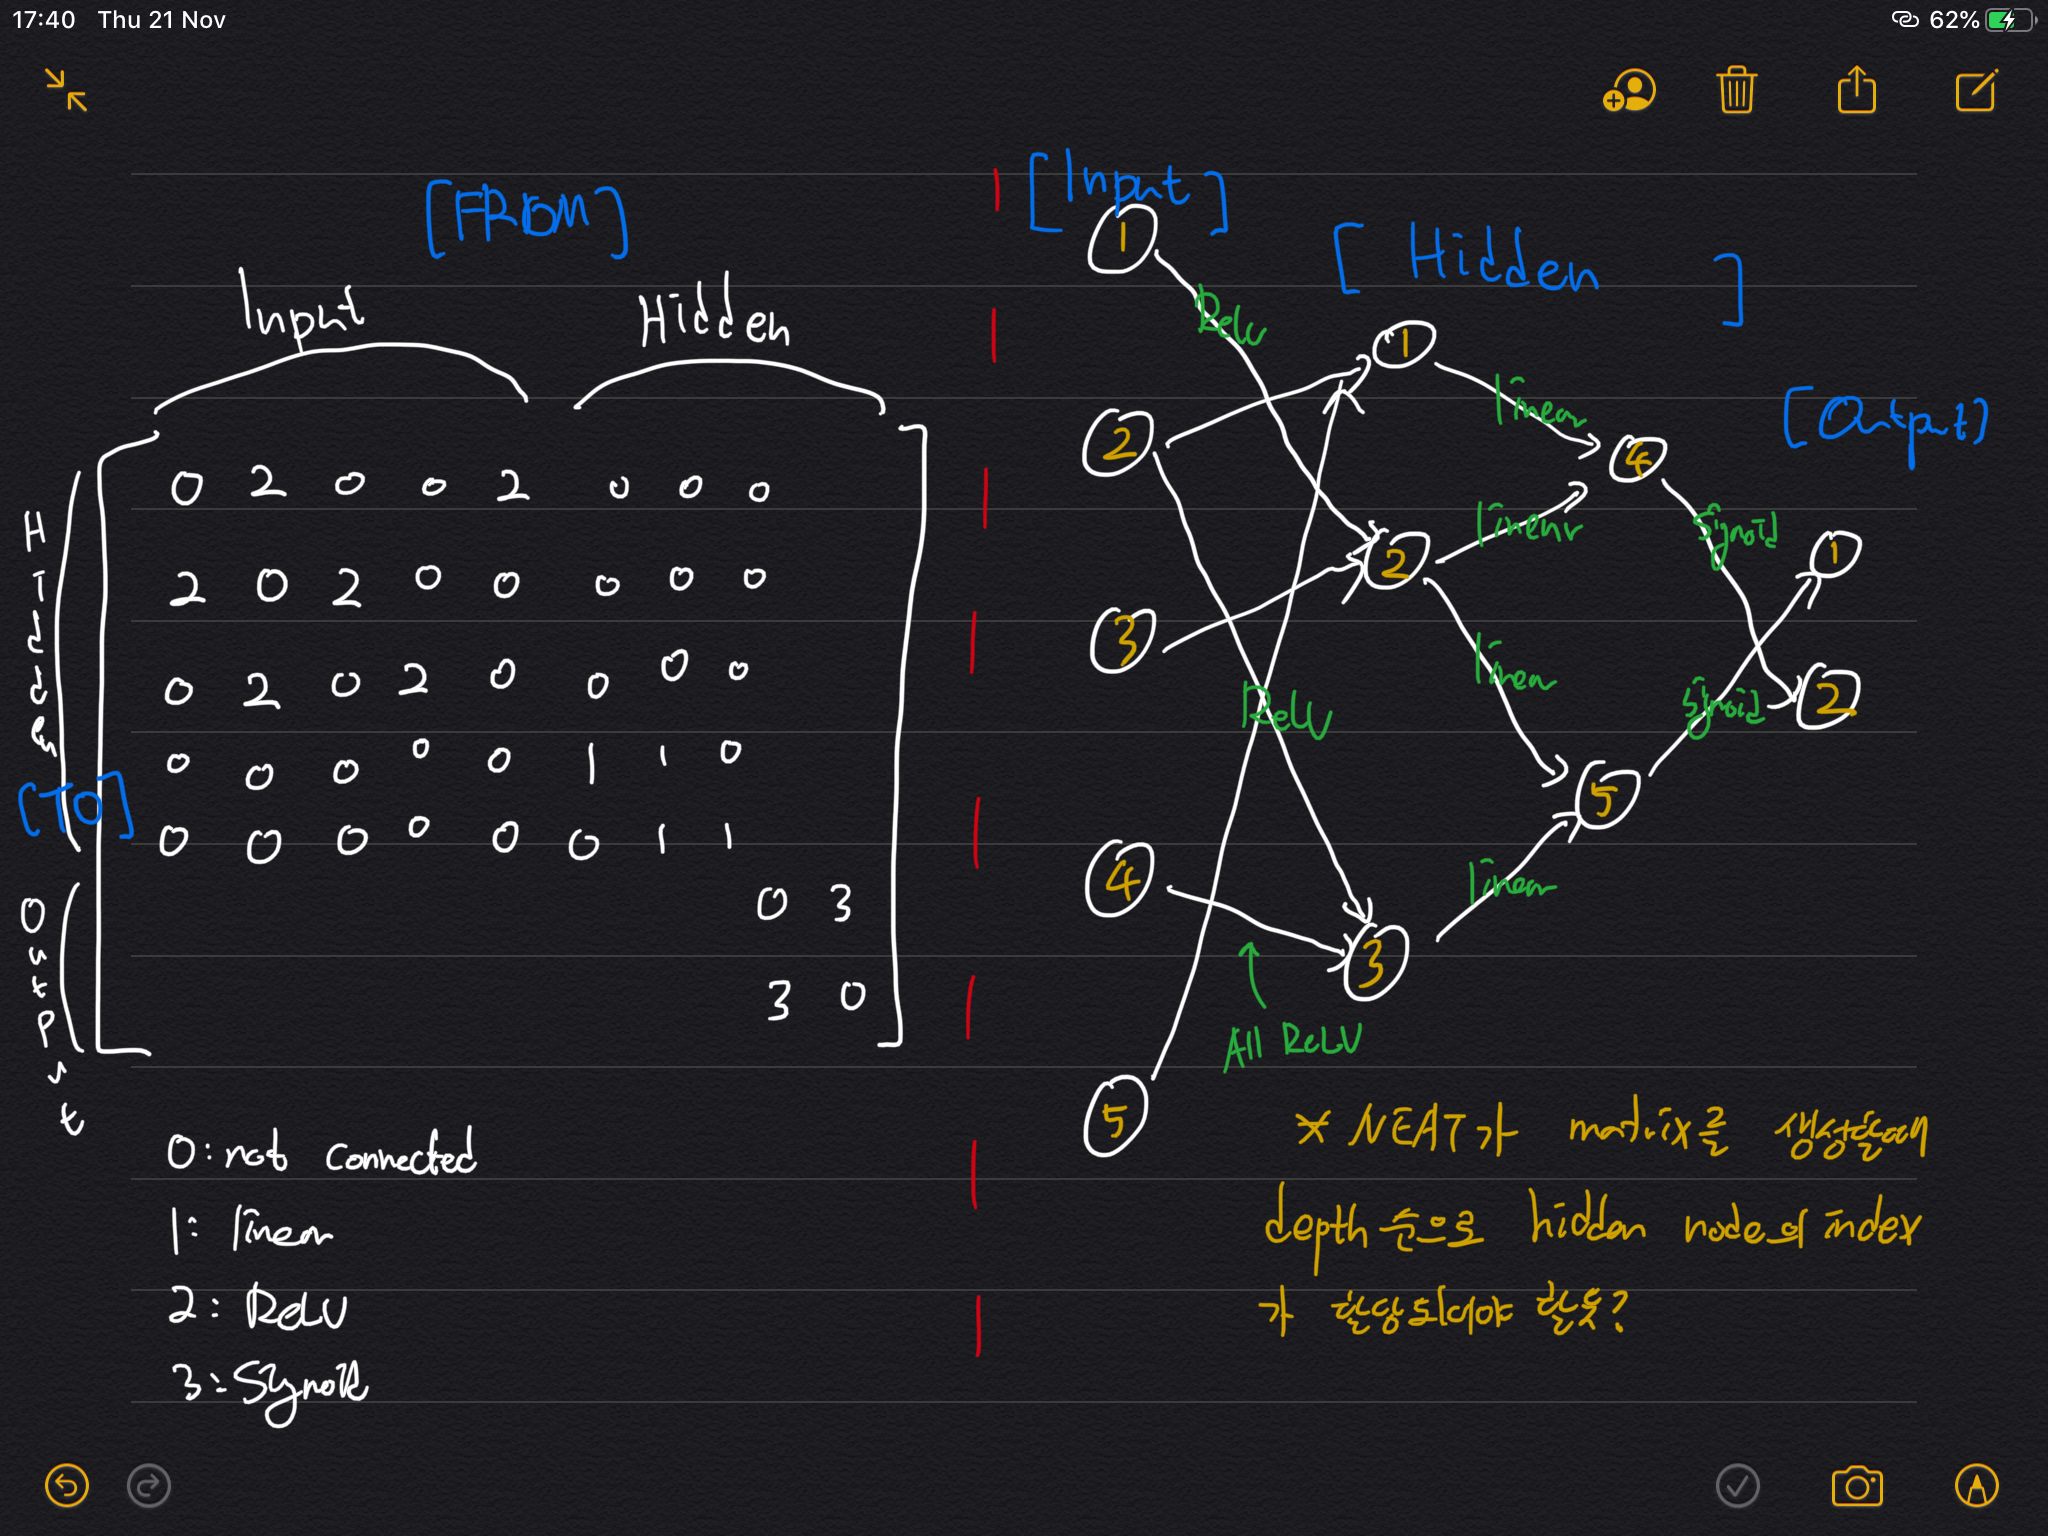 17:40 Thu 21 Nov
62%
[FROM]
Input Hidden
Hidden
[TO]
Output
0 2 0 0 2 0 0 0
2 0 2 0 0 0 0 0
0 2 0 2 0 0 0 0
0 0 0 0 0 1 1 0
0 0 0 0 0 0 1 1
0 3
3 0
0: not connected
1: linear
2: ReLU
3: Sigmoid
[Input]
[Hidden]
[Output]
1
2
3
4
5
1
2
3
4
5
1
2
Relu
ReLU
linear
linear
linear
linear
Sigmoid
Sigmoid
All ReLU
* NEAT가 matrix를 생성할때
depth 순으로 hidden node의 index
가 할당되어야 할듯?